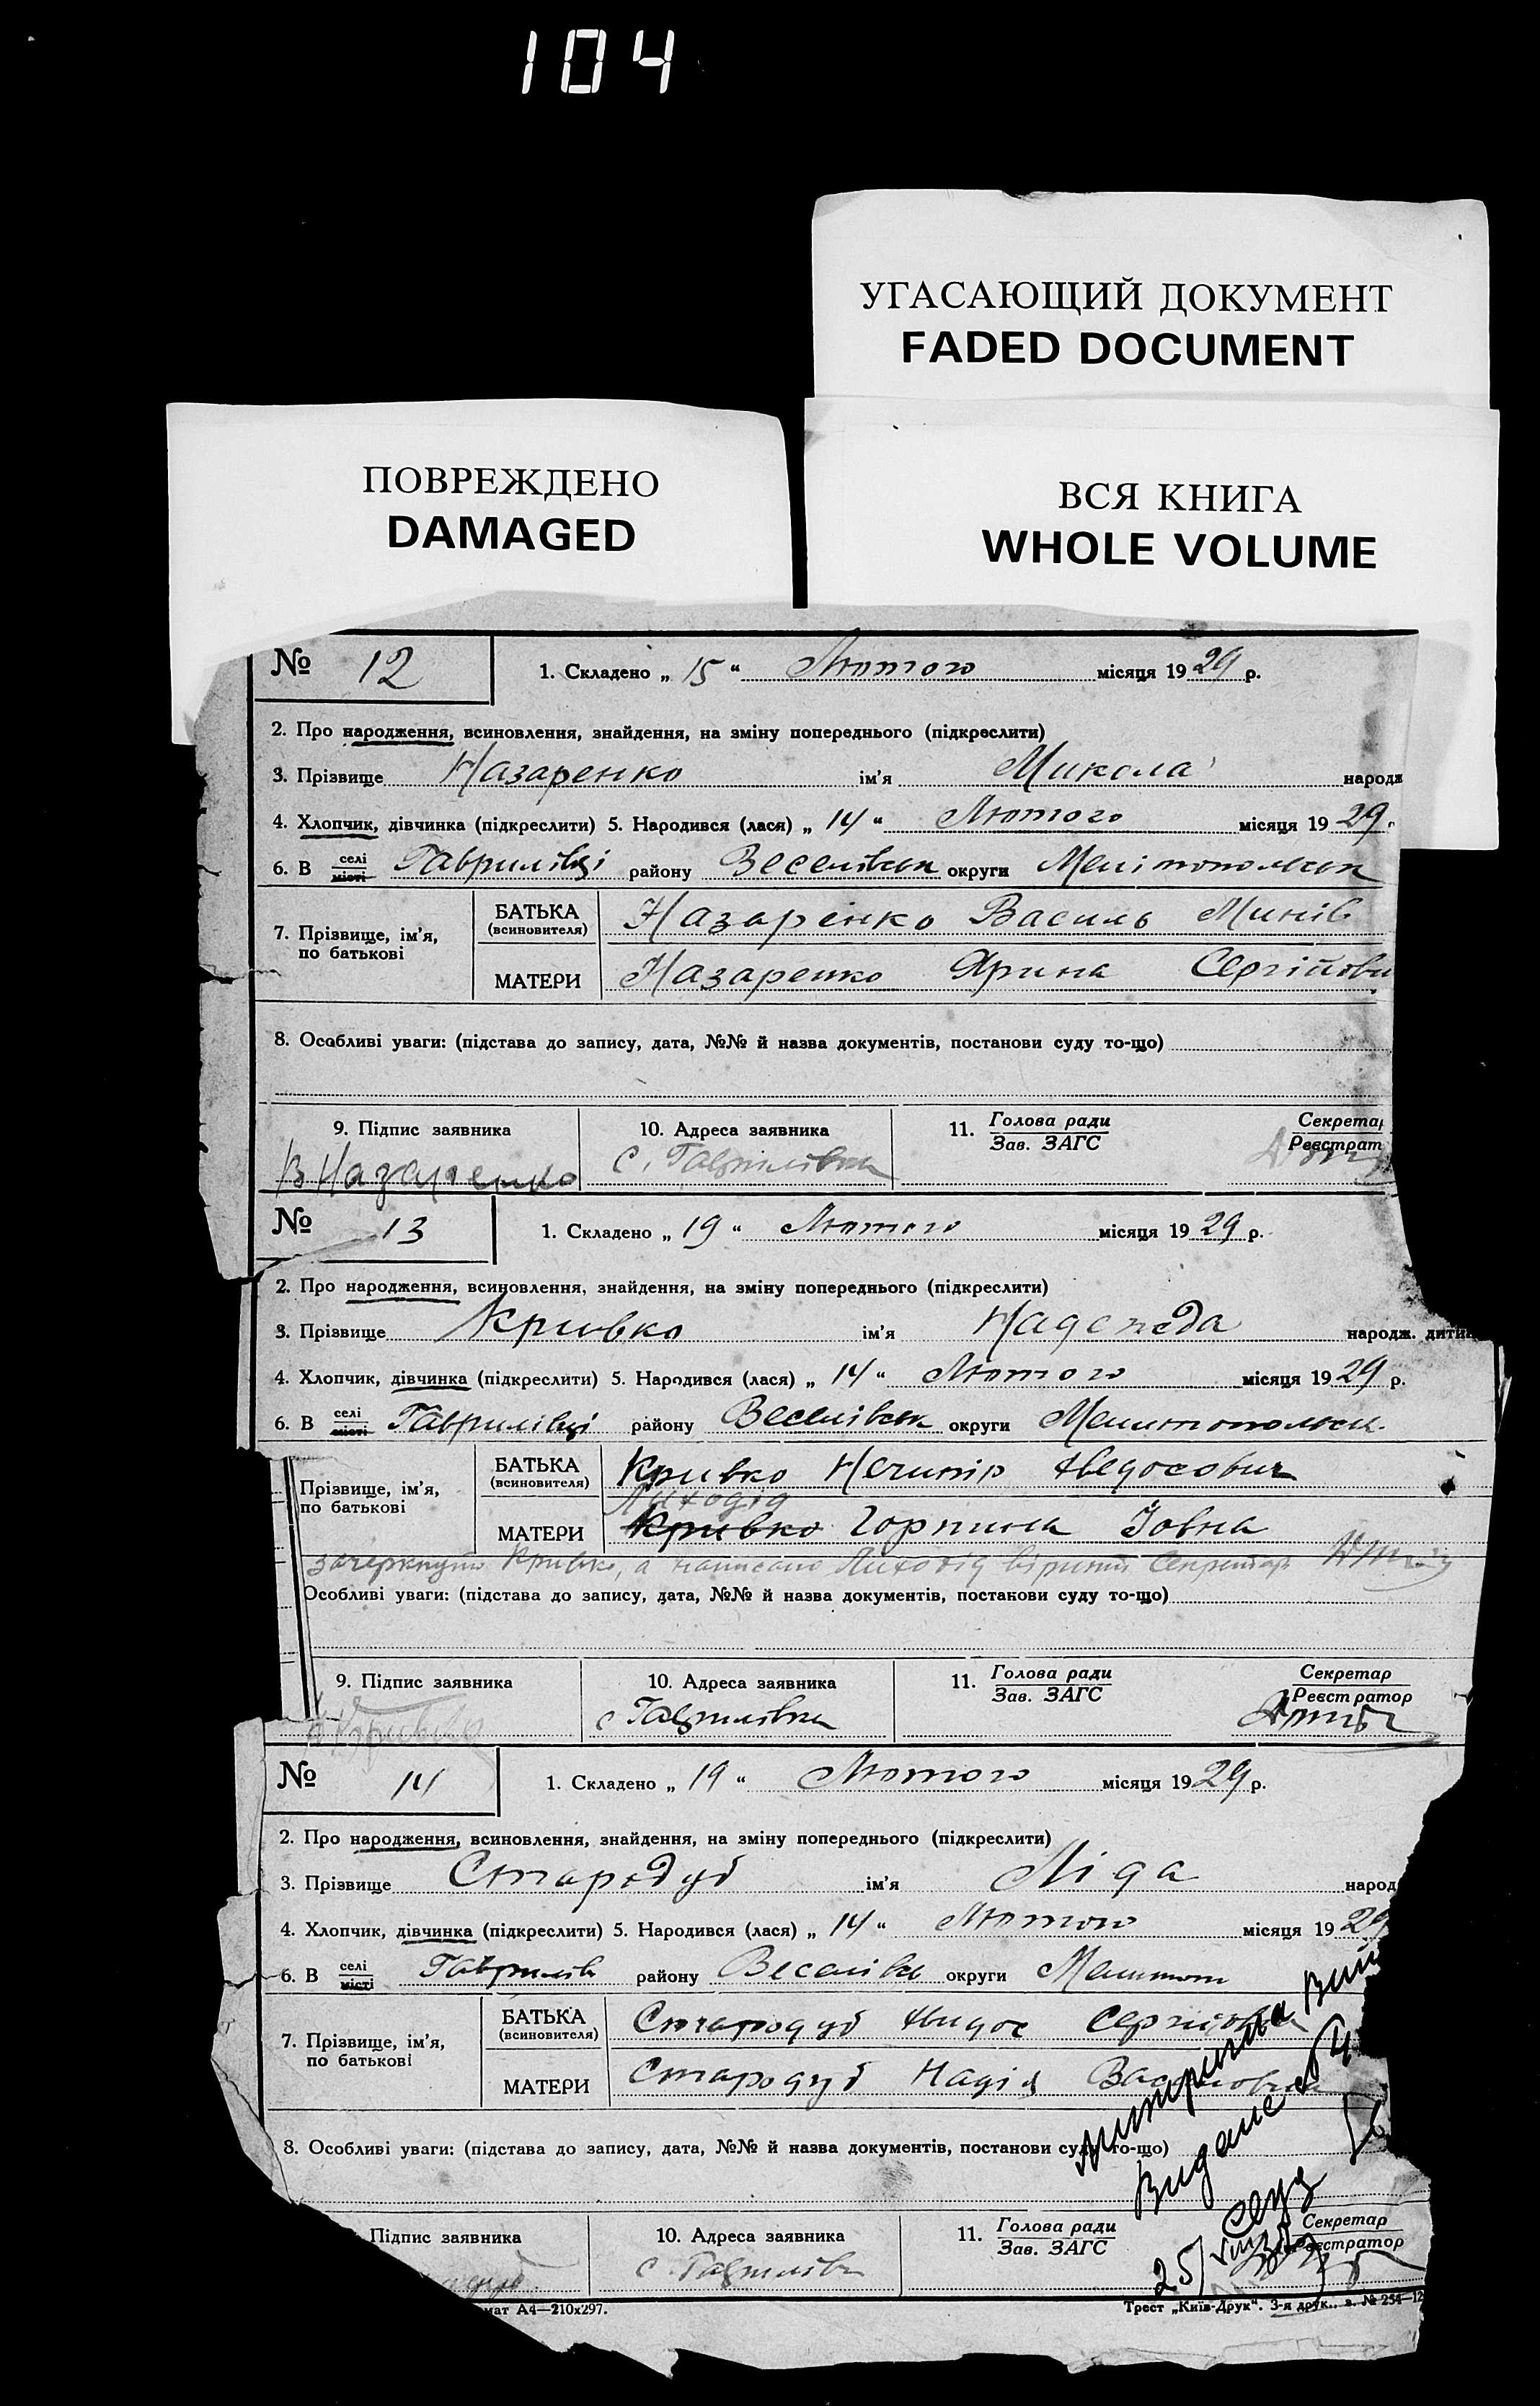 104
УГАСАЮЩИЙ ДОКУМЕНТ
FADED DOCUMENT
ПОВРЕЖДЕНО
DAMAGED
ВСЯ КНИГА
WHOLE VOLUME
№ 12 1. Складено „ 15 “ Лютого місяця 1929 р.
2. Про народження, всиновлення, знайдення, на зміну попереднього (підкреслити)
3. Прізвище Назаренко ім’я Микола народж
4. Хлопчик, дівчинка (підкреслити) 5. Народився (лася) „ 14 “ Лютого місяця 1929
6. В селі місті Гаврилівці району Веселівськ округи Мелітопольськ
7. Прізвище, ім’я, по батькові
БАТЬКА (всиновителя) Назаренко Василь Минів
МАТЕРИ Назаренко Ярина Сергійовн
8. Особливі уваги: (підстава до запису, дата, №№ й назва документів, постанови суду то-що)
9. Підпис заявника 10. Адреса заявника 11. Голова ради Зав. ЗАГС Секретар Реєстрат
В Назаренко с. Гаврилівка
№ 13 1. Складено „ 19 “ Лютого місяця 1929 р.
2. Про народження, всиновлення, знайдення, на зміну попереднього (підкреслити)
3. Прізвище Кривко ім’я Надежда народж. дитин
4. Хлопчик, дівчинка (підкреслити) 5. Народився (лася) „ 14 “ Лютого місяця 1929 р.
6. В селі місті Гаврилівці району Веселівськ округи Мелитопольськ.
Прізвище, ім’я, по батькові
БАТЬКА (всиновителя) Кривко Нечипір Хведосович
Лиходід
МАТЕРИ Кривко Горпина Іовна
зачеркнуто Кривко, а написано Лиходід вірити Секретарь
Особливі уваги: (підстава до запису, дата, №№ й назва документів, постанови суду то-що)
9. Підпис заявника 10. Адреса заявника 11. Голова ради Зав. ЗАГС Секретар Реєстратор
Кривко с Гаврилівка
№ 14 1. Складено „ 19 “ Лютого місяця 1929 р.
2. Про народження, всиновлення, знайдення, на зміну попереднього (підкреслити)
3. Прізвище Стародуб ім’я Ліда народ
4. Хлопчик, дівчинка (підкреслити) 5. Народився (лася) „ 14 “ Лютого місяця 1929
6. В селі місті Гаврилів району Веселівсь округи Мелитоп
7. Прізвище, ім’я, по батькові
БАТЬКА (всиновителя) Стародуб Хвидос Сергійович
МАТЕРИ Стародуб Надія Василовна
8. Особливі уваги: (підстава до запису, дата, №№ й назва документів, постанови суду то-що)
Видане
25/
Підпис заявника 10. Адреса заявника 11. Голова ради Зав. ЗАГС Секретар Реєстратор
с. Гаврилівк
мат А4—210х297. Трест „Київ-Друк“. 3-я друк., з. № 254—12